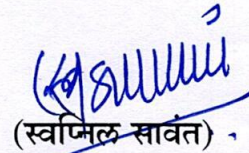 (स्वप्निल सावंत)